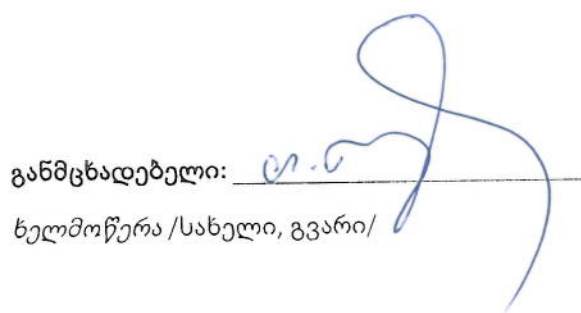 განმცხადებელი:
ხელმოწერა /სახელი, გვარი/